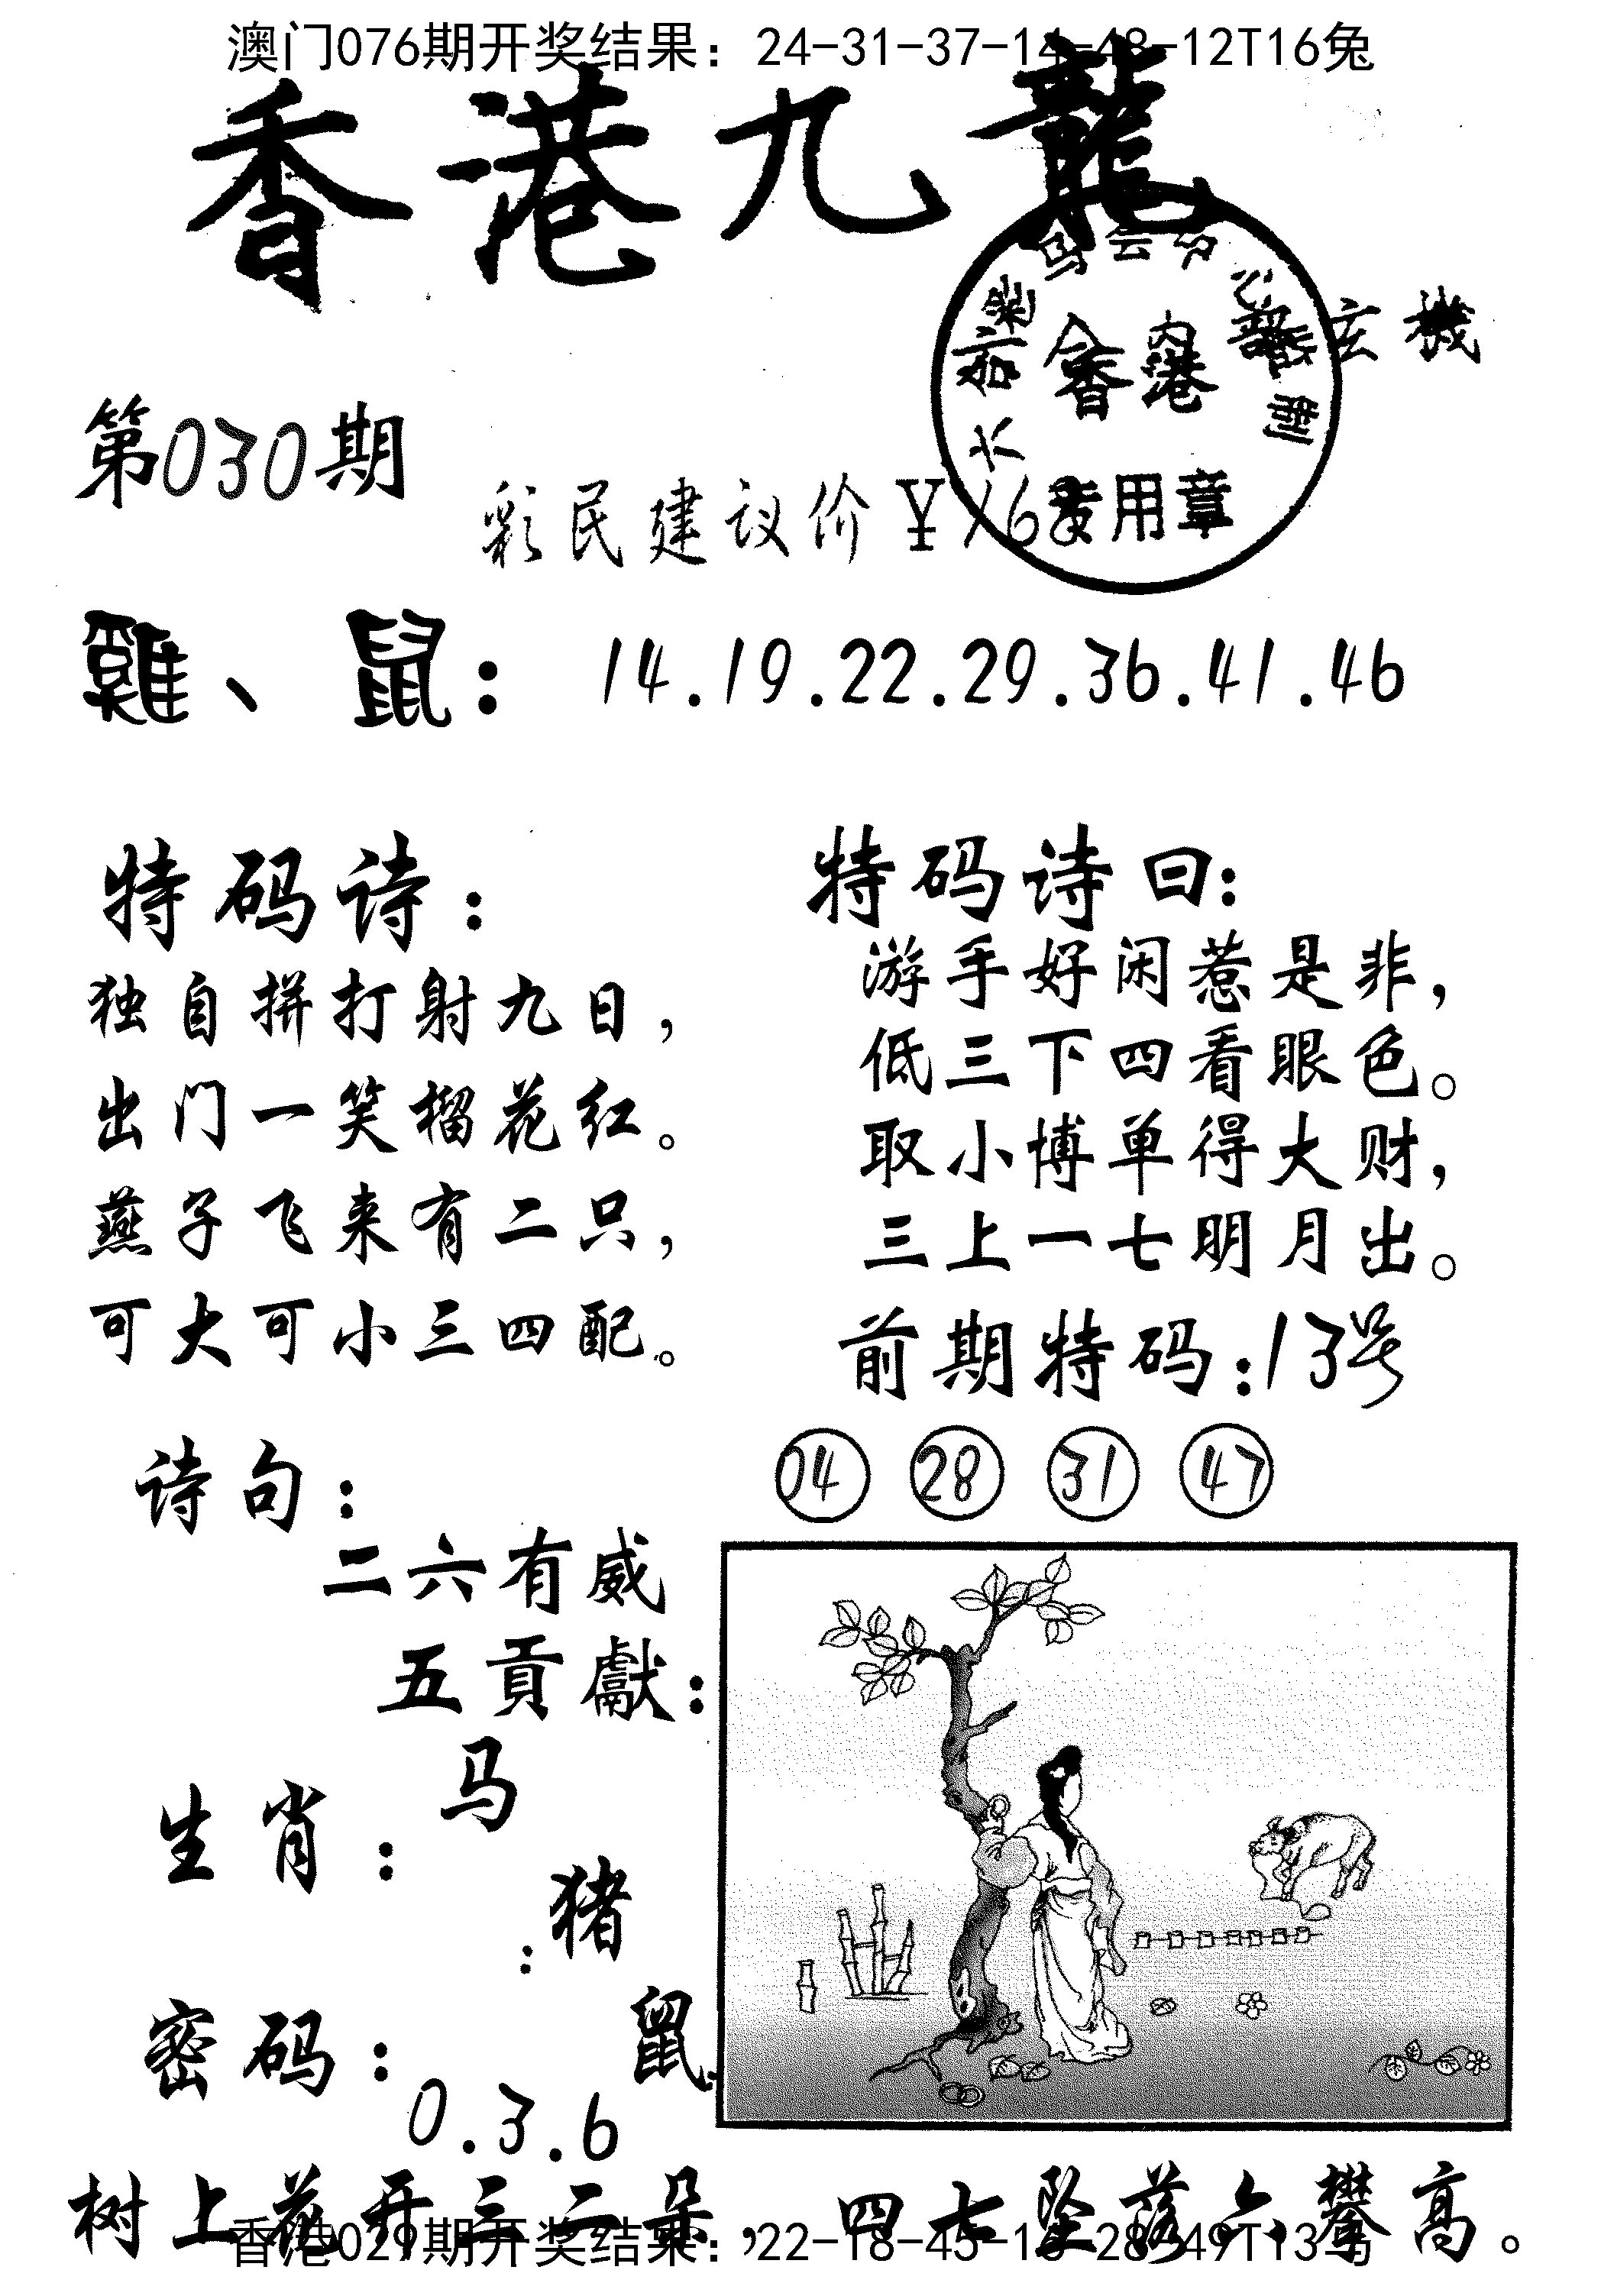 澳门076期开奖结果：24-31-37-14-48-12T16兔
香港九龍
玄機
香港
第030期
彩民建议价￥
专用章
雞、鼠：14.19.22.29.36.41.46
特码诗：
独自拼打射九日，
出门一笑榴花红。
燕子飞来有二只，
可大可小三四配。
特码诗曰：
游手好闲惹是非，
低三下四看眼色。
取小博单得大财，
三上一七明月出。
前期特码：13号
04 28 31 47
诗句：
二六有威
五貢獻：
生肖：
马
猪
鼠
密码：
0.3.6
树上花开三二朵，四七坠落六攀高。
香港029期开奖结果：22-18-45-1 28-49T13马